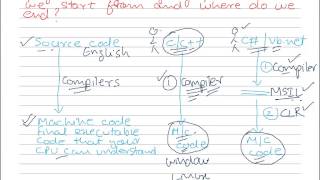 we start from and where do we
end?
Source code
English
C/C++
C#/vb.net
① Compiler
Compilers
① Compiler
MSIL
② CLR
Machine code
final executable
code that your
CPU can understand
M/C
code
M/C
code
window